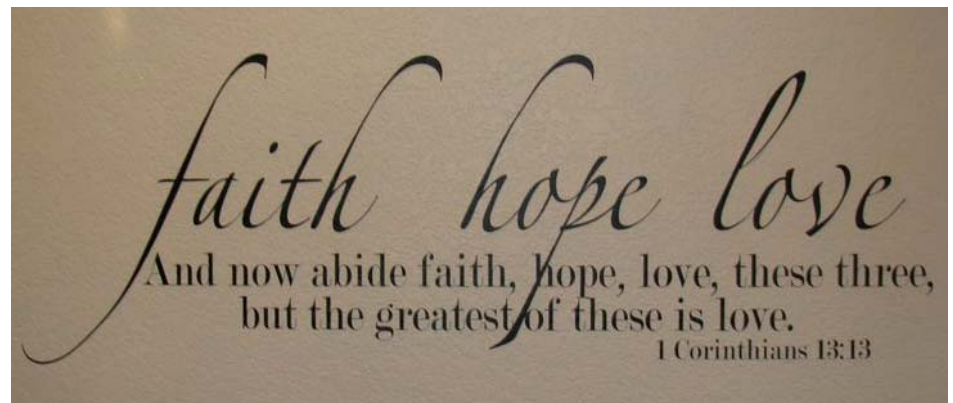 faith hope love
And now abide faith, hope, love, these three,
but the greatest of these is love.
1 Corinthians 13:13